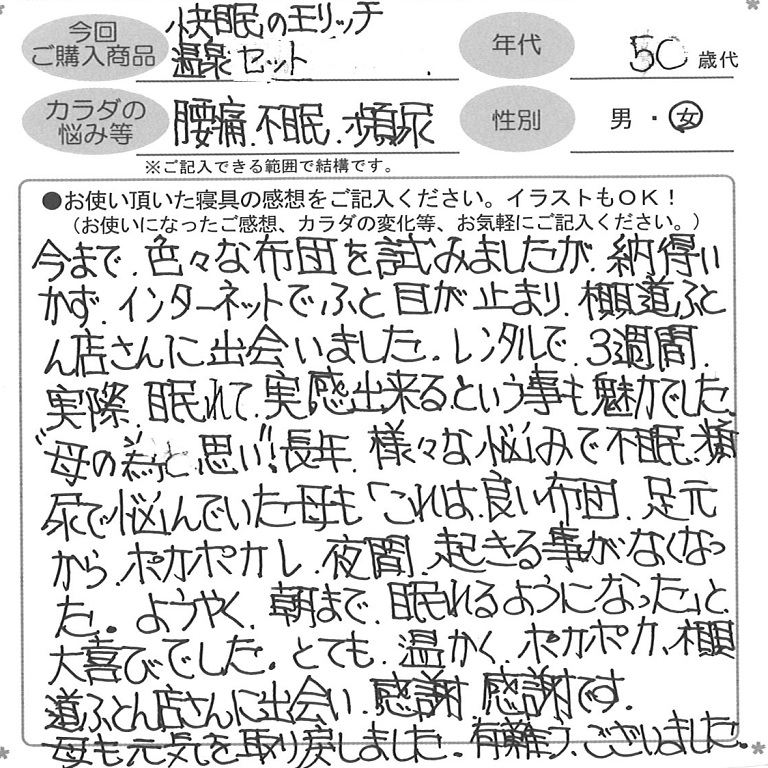 今回
ご購入商品
快眠のエリッチ
温泉セット
年代
50歳代
カラダの
悩み等
腰痛.不眠.頻尿
性別
男・女
※ご記入できる範囲で結構です。
●お使い頂いた寝具の感想をご記入ください。イラストもOK！
（お使いになったご感想、カラダの変化等、お気軽にご記入ください。）
今まで.色々な布団を試みましたが.納得い
かず.インターネットでふと目が止まり.棚道ふと
ん店さんに出会いました。レンタルで.3週間.
実際.眠れて.実感出来るという事も魅力でした。
“母の為と思い”！長年.様々な悩みで不眠.頻
尿で悩んでいた母も「これは良い布団.足元
から.ポカポカし.夜間.起きる事がなくなっ
た。ようやく.朝まで.眠れるようになった」と
大喜びでした。とても.温かく.ポカポカ.棚
道ふとん店さんに出会い.感謝.感謝です.
母も元気を取り戻しました。有難う.ございました。